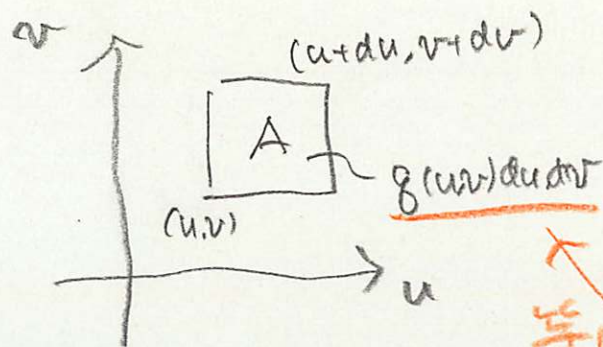 v
(u+du, v+dv)
A
g(u,v)dudv
(u,v)
u